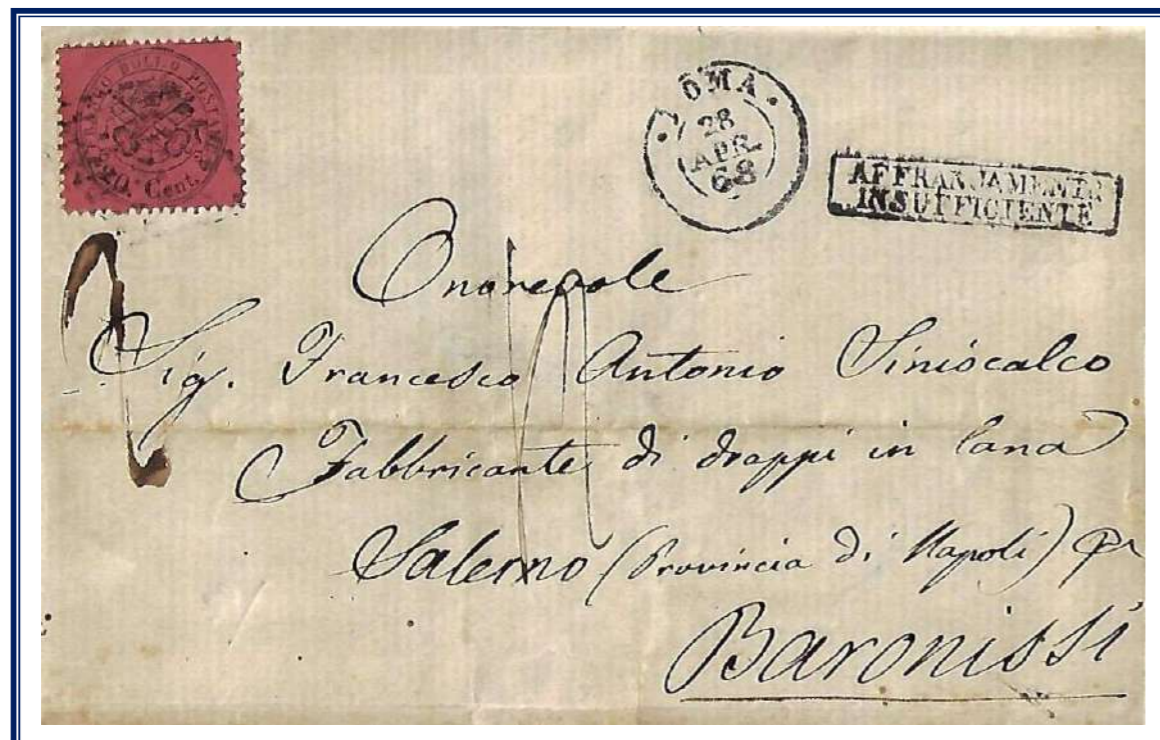 FRANCO BOLLO POSTALE
20. Cent.
ROMA
28
APR.
68
AFFRANCAMENTO
INSUFFICIENTE
Onorevole
Sig. Francesco Antonio Siniscalco
Fabbricante di drappi in lana
Salerno (Provincia di Napoli) pr
Baronissi